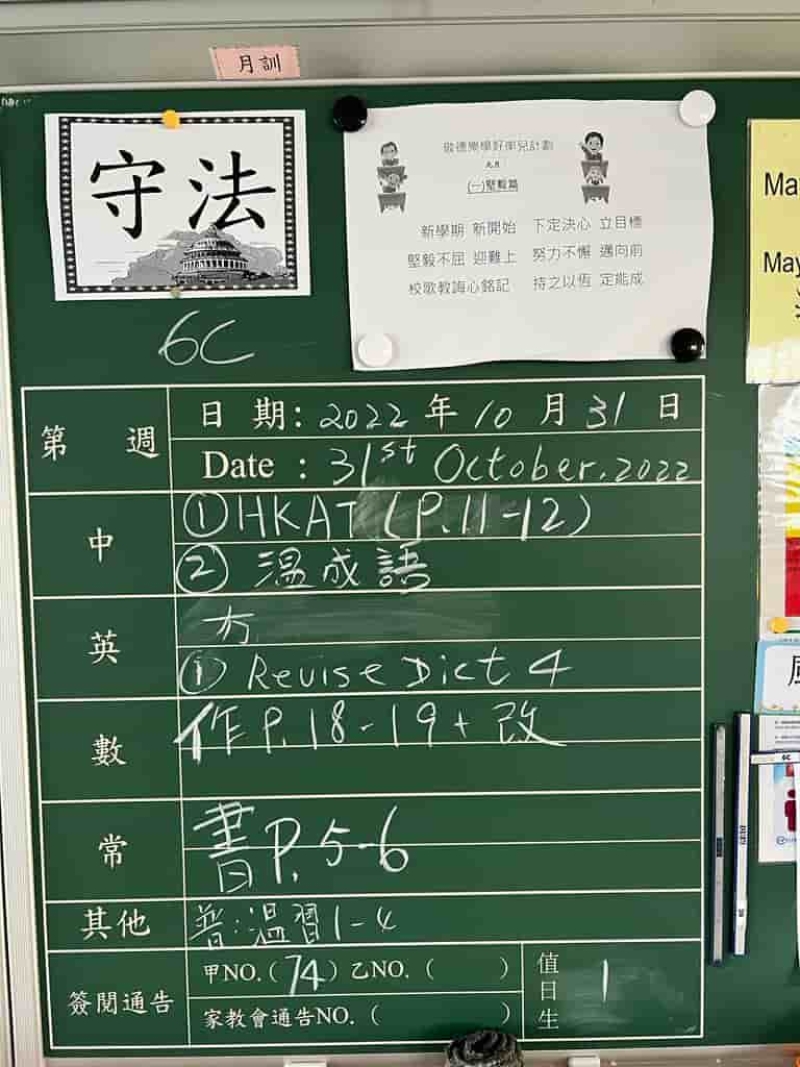 月訓
守法
敬德樂學好學兒計劃
九月
(一)堅毅篇
新學期 新開始 下定決心 立目標
堅毅不屈 迎難上 努力不懈 邁向前
校歌教誨心銘記 持之以恆 定能成
Ma
May
6C
第 週
日 期: 2022 年 10 月 31 日
Date : 31st October, 2022
中
①HKAT (P.11-12)
② 溫成語
英
冇
① Revise Dict 4
數
作 P.18-19 + 改
常
書 P. 5-6
其他
普:溫習1-4
簽閱通告
甲NO. (74) 乙NO. ( )
家教會通告NO. ( )
值日生
1
6C